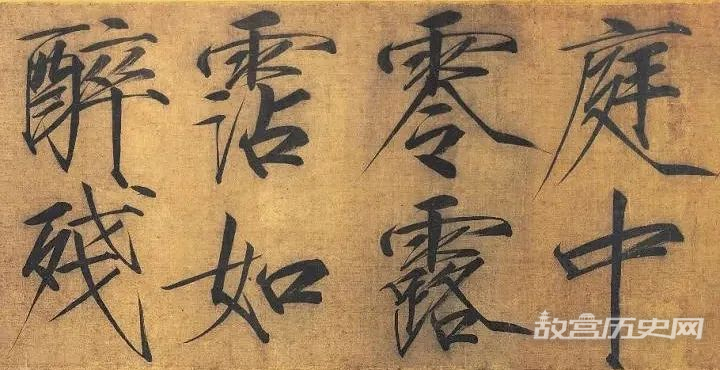 庭中
零露
霑如
醉残
故宫历史网